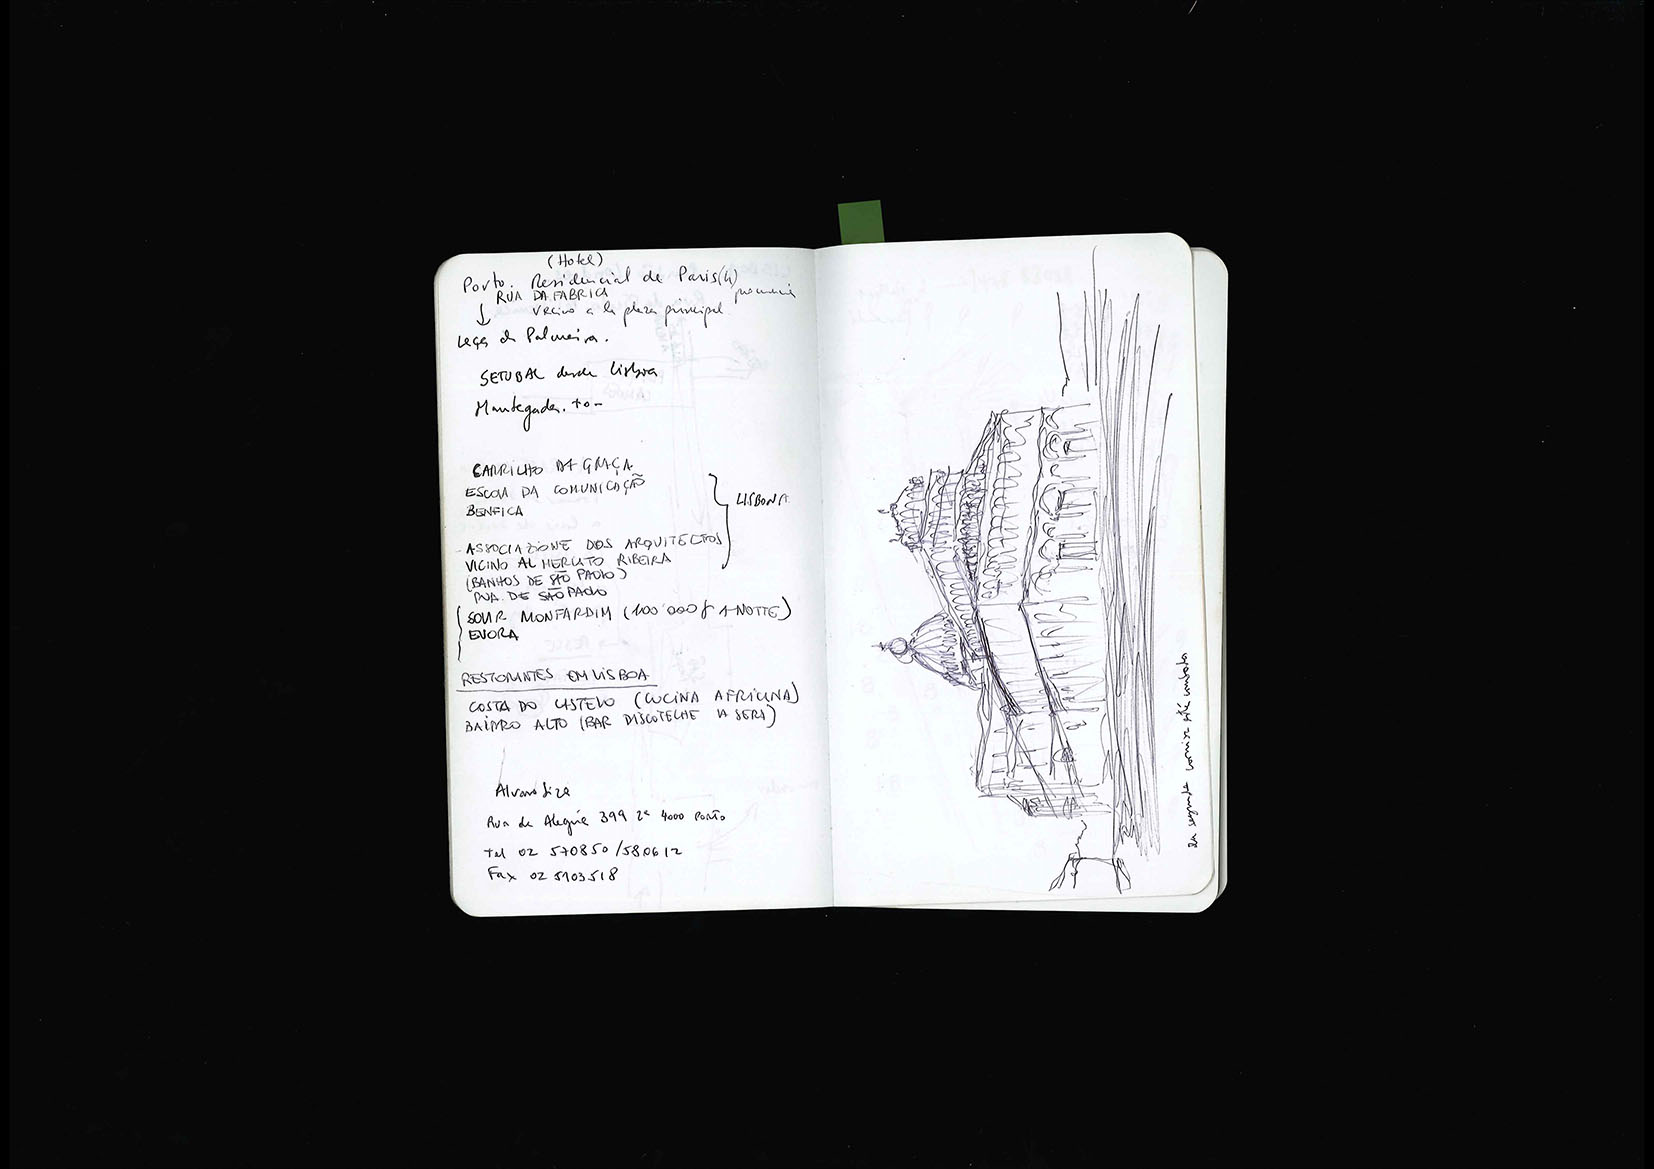 (Hotel)
Porto. Residencial de Paris (4)
RUA DA FABRICA
vecino a la plaza principal
Leça da Palmeira.
SETUBAL desde Lisboa
Mantegada. to-
CARRILHO DA GRAÇA
ESCOLA DA COMUNICAÇÃO
BENFICA
LISBONA
- ASSOCIAZIONE DOS ARQUITECTOS
VICINO AL MERCATO RIBEIRA
(BANHOS DE SÃO PAULO)
RUA DE SÃO PAOLO
SOLAR MONFARDIM (100'000 £ 1 NOTTE)
EVORA
RESTORANTES EM LISBOA
COSTA DO CASTELO (CUCINA AFRICANA)
BAIRRO ALTO (BAR DISCOTECHE LA SERA)
Alvaro Siza
Rua de Alegria 399 2º 4000 Porto
Tel 02 570850 / 580612
Fax 02 5103518
La segunda cornisa está